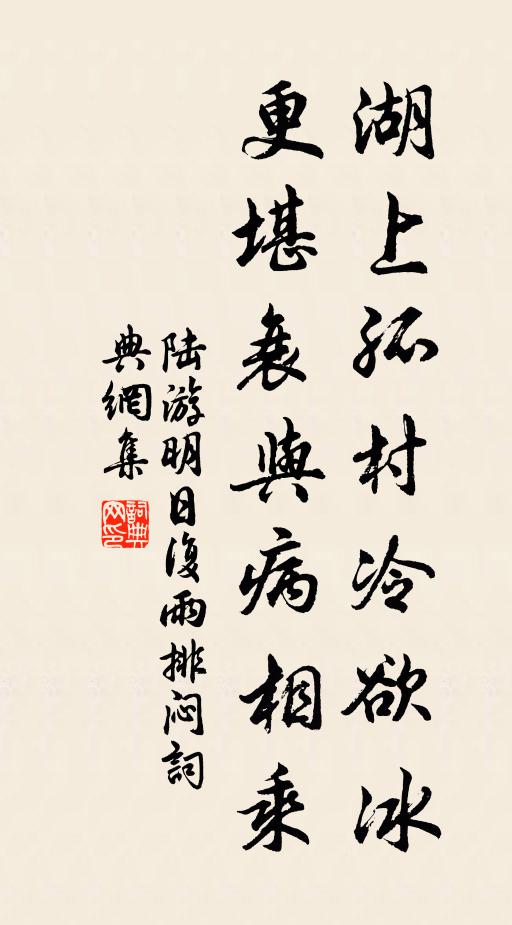 湖上孤村冷欲冰
更堪衰與病相乘
陸游明日復雨排悶詞
典網集
詞典
网印